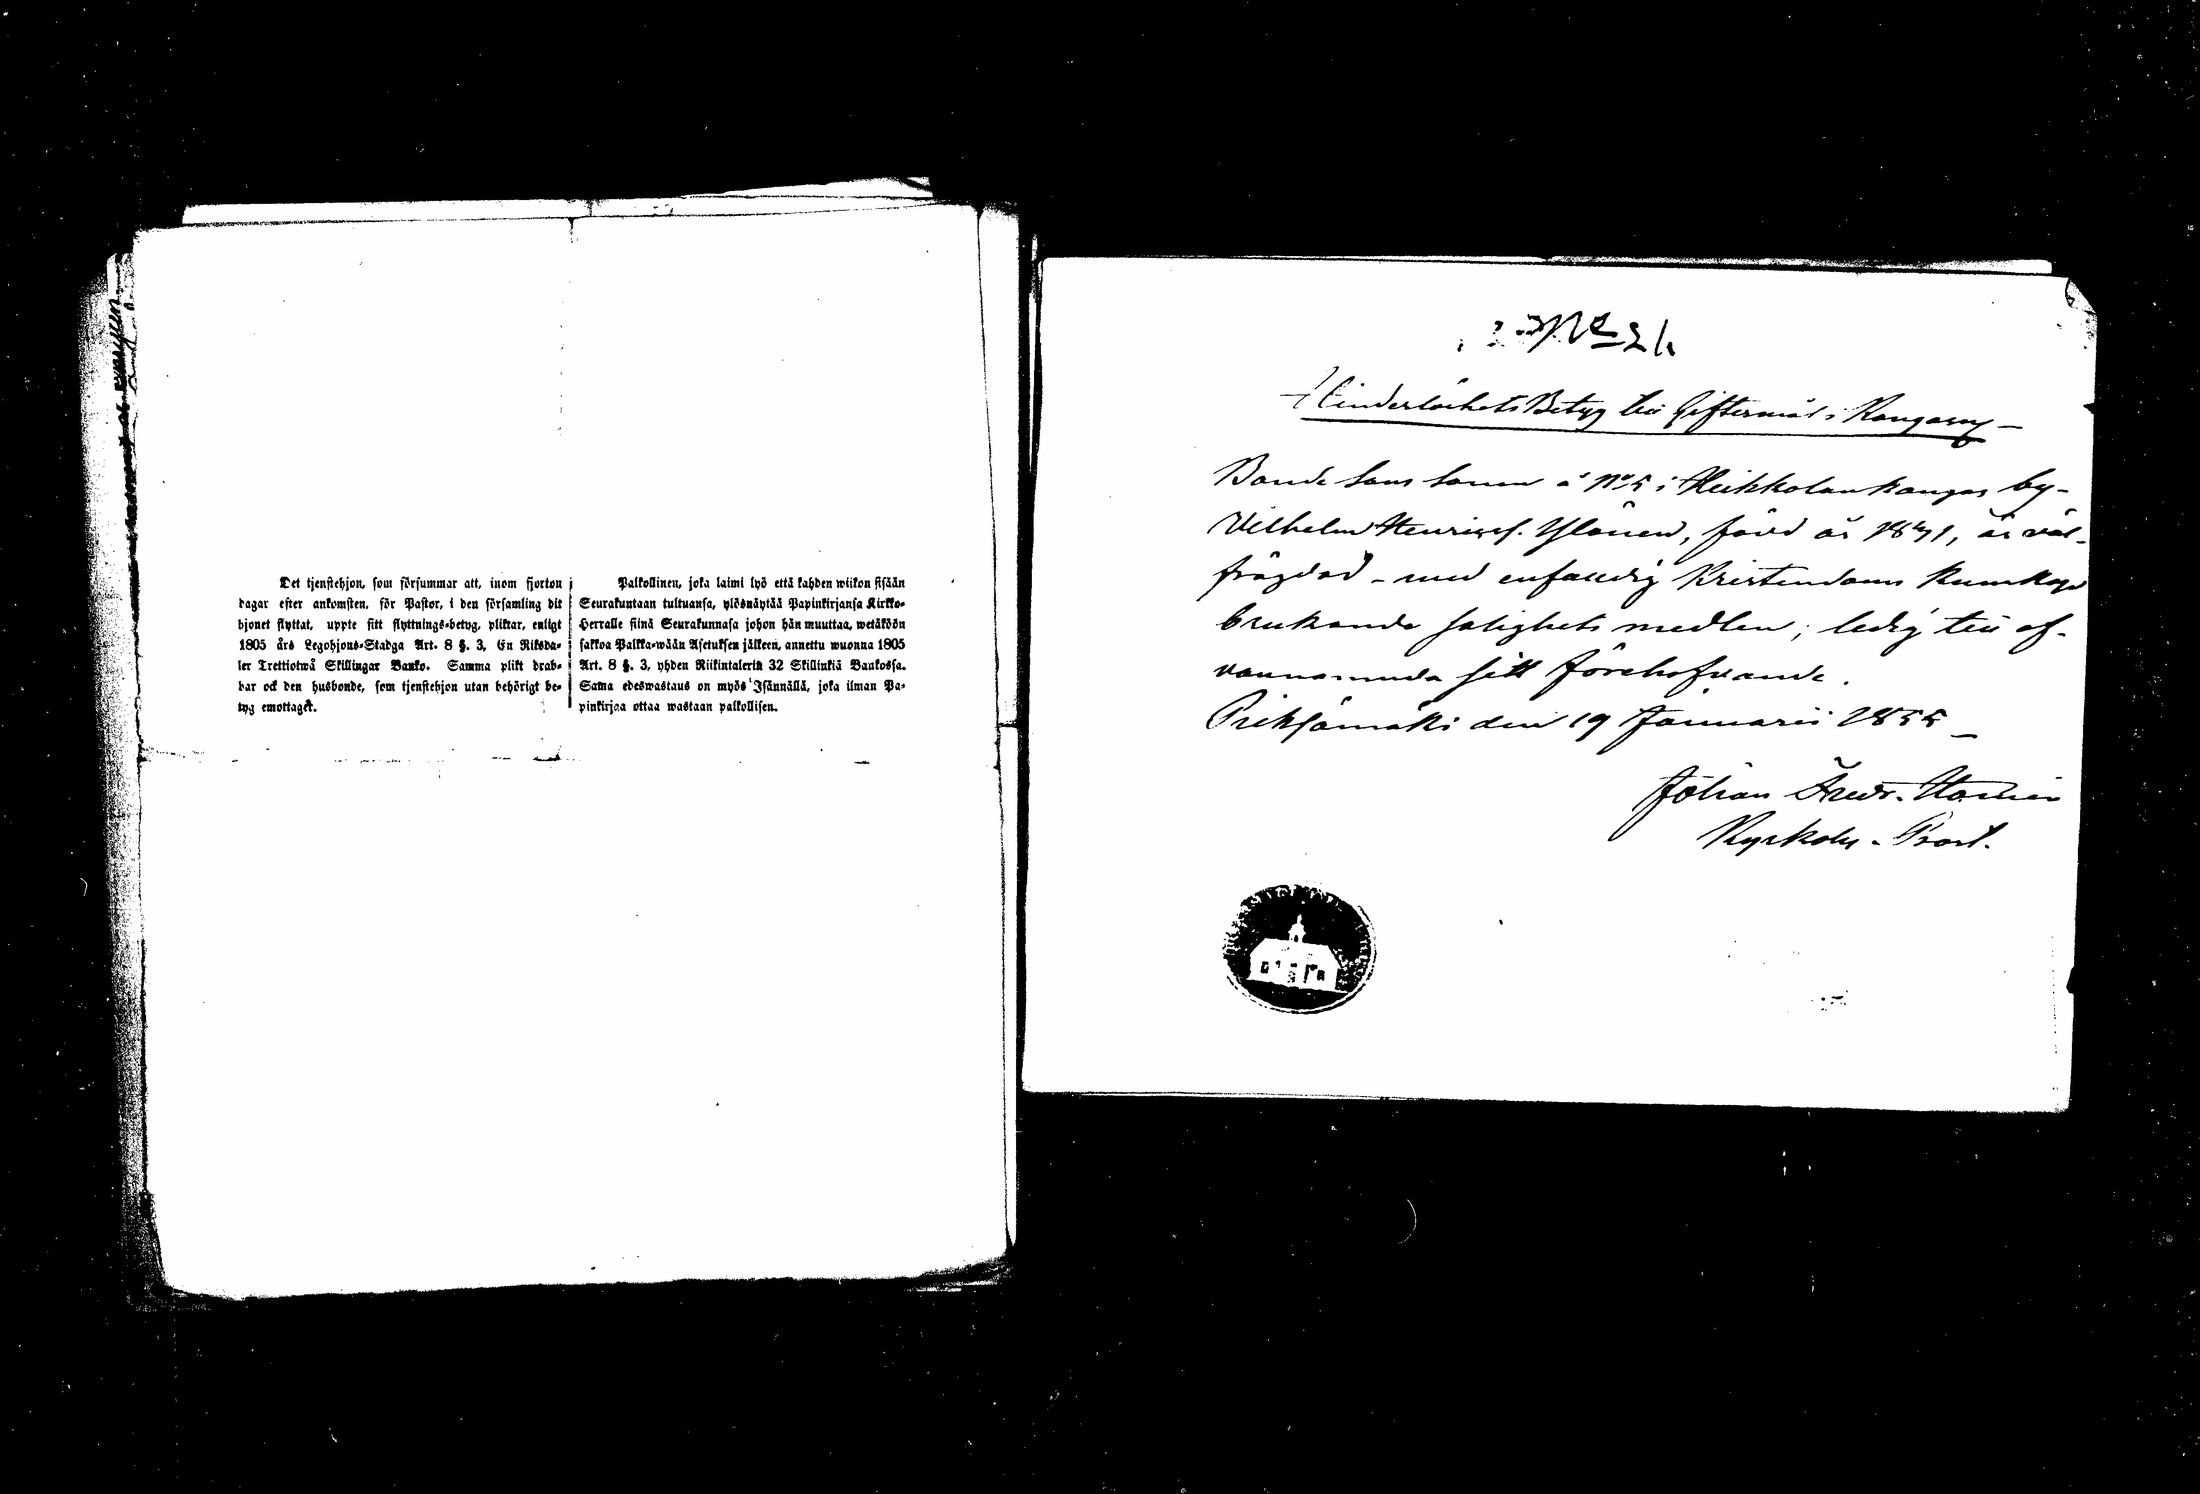 Det tjenstehjon, som försummar att, inom fjorton
dagar efter ankomsten, för Pastor, i den församling dit
hjonet flyttat, uppte sitt flyttnings-betyg, pliktar, enligt
1805 års Legohjons-Stadga Art. 8 §. 3, En Riksda-
ler Trettiotwå Skillingar Banko. Samma plikt drab-
bar ock den husbonde, som tjenstehjon utan behörigt be-
tyg emottaget.
Palkollinen, joka laimi lyö että kahden wiikon sisään
Seurakuntaan tultuansa, ylösnäytää Papinkirjansa Kirkko-
Herralle siinä Seurakunnasa johon hän muuttaa, wetäköön
sakkoa Palkka-wään Asetuksen jälkeen, annettu wuonna 1805
Art. 8 §. 3, yhden Riikintalerin 32 Skillinkiä Baukossa.
Sama edeswastaus on myös Isännällä, joka ilman Pa-
pinkirjaa ottaa wastaan palkollisen.
Hinderlöshets Betyg till Giftermål i Kangasny
Bonde Sons Sonen å No 5 i Heikkolankangas by-
Vilhelm Henricsf. Ylönen, född år, är väl-
frägdad - med enfaldig Kristendoms Kunskap
brukande salighets medlen; ledig till of-
vannämnda sitt förehafvande.
Pieksämäki den 19 Januarii 1855
Johan Fredr.
Kyrkoh. Prost.